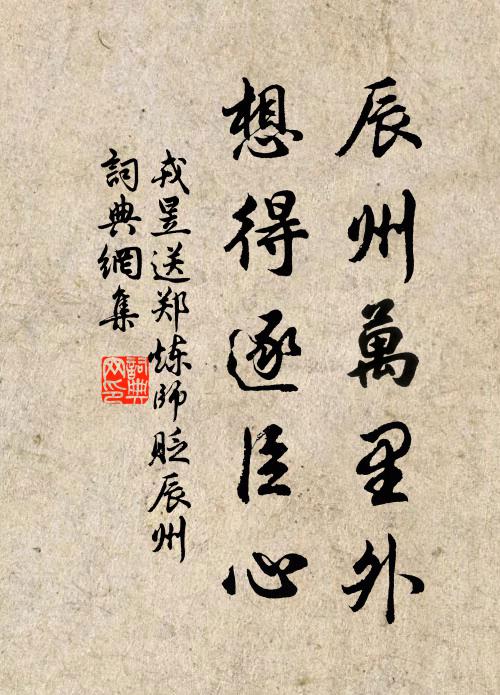 辰州萬里外
想得逐臣心
戎昱送郑炼師貶辰州
詞典網集
詞典
网印